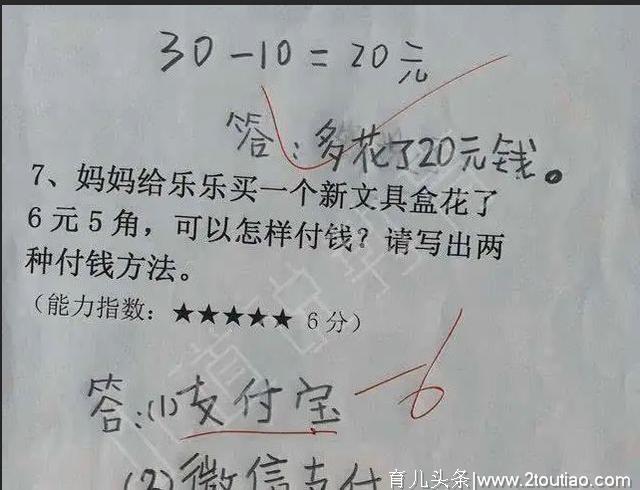 30-10=20元
答:多花了20元钱。
7、妈妈给乐乐买一个新文具盒花了
6元5角，可以怎样付钱？请写出两
种付钱方法。
（能力指数：★★★★★ 6分）
答:(1)支付宝 -6
(2)微信支付
育儿头条|www.2toutiao.com